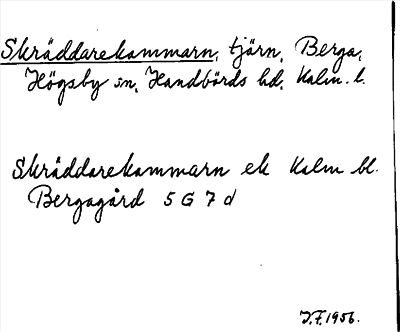 Skräddarekammarn, tjärn, Berga,
Högsby sn, Handbörds hd, Kalm. l.
Skräddarekammarn ek Kalm bl.
Bergagård 5 G 7 d
J.F. 1956.